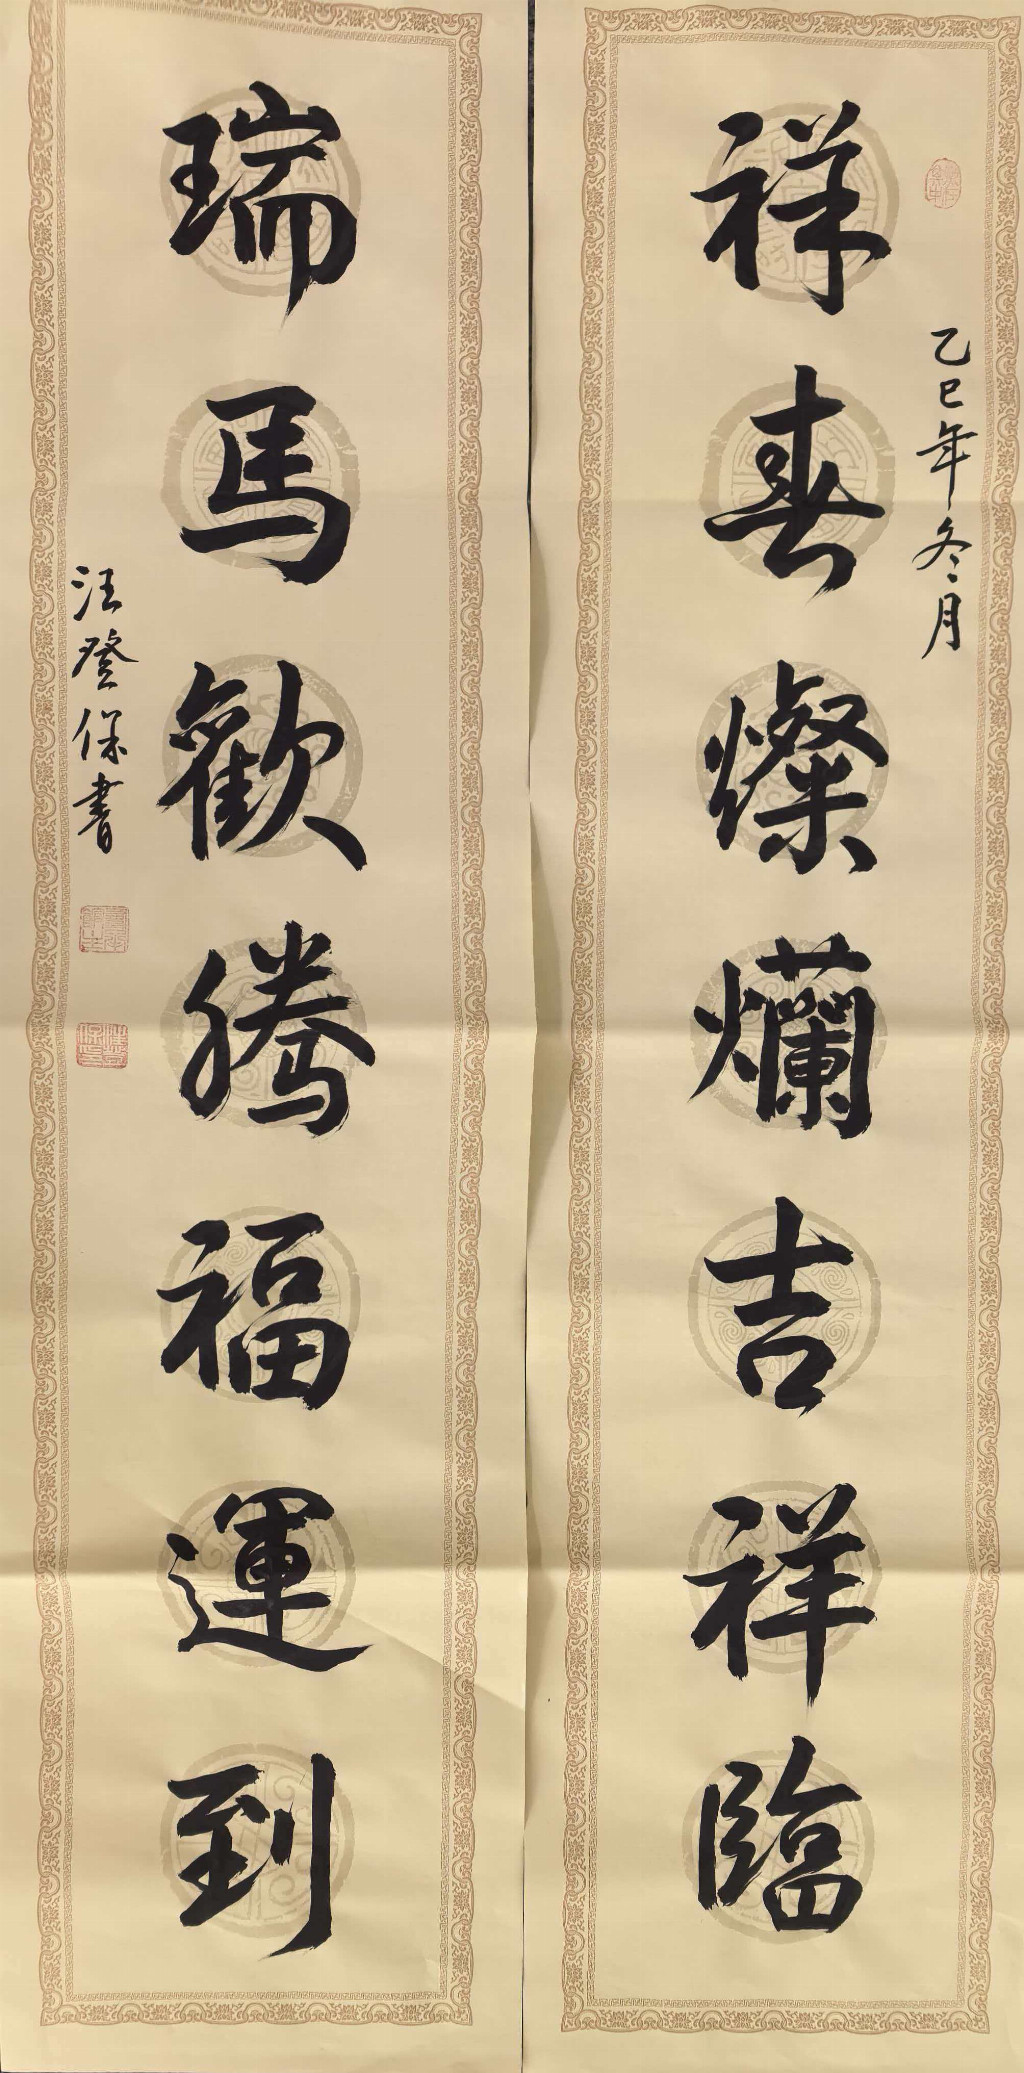 祥春燦爛吉祥臨
乙巳年冬月
瑞馬歡騰福運到
汪登保書